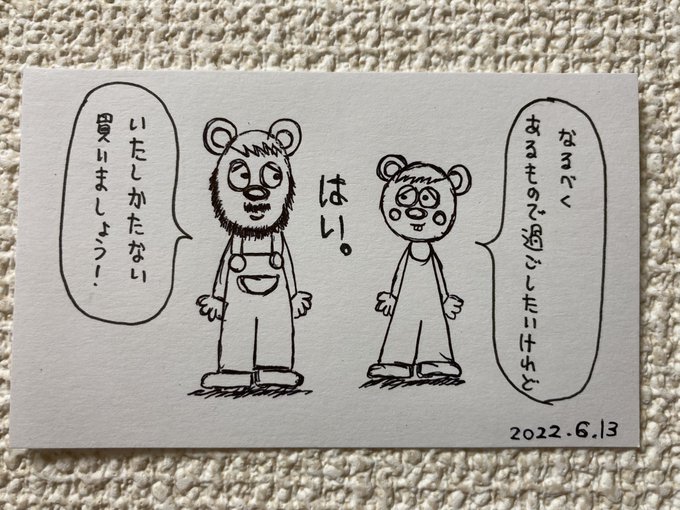 なるべく
あるもので過ごしたいけれど
はい。
いたしかたない
買いましょう！
2022.6.13